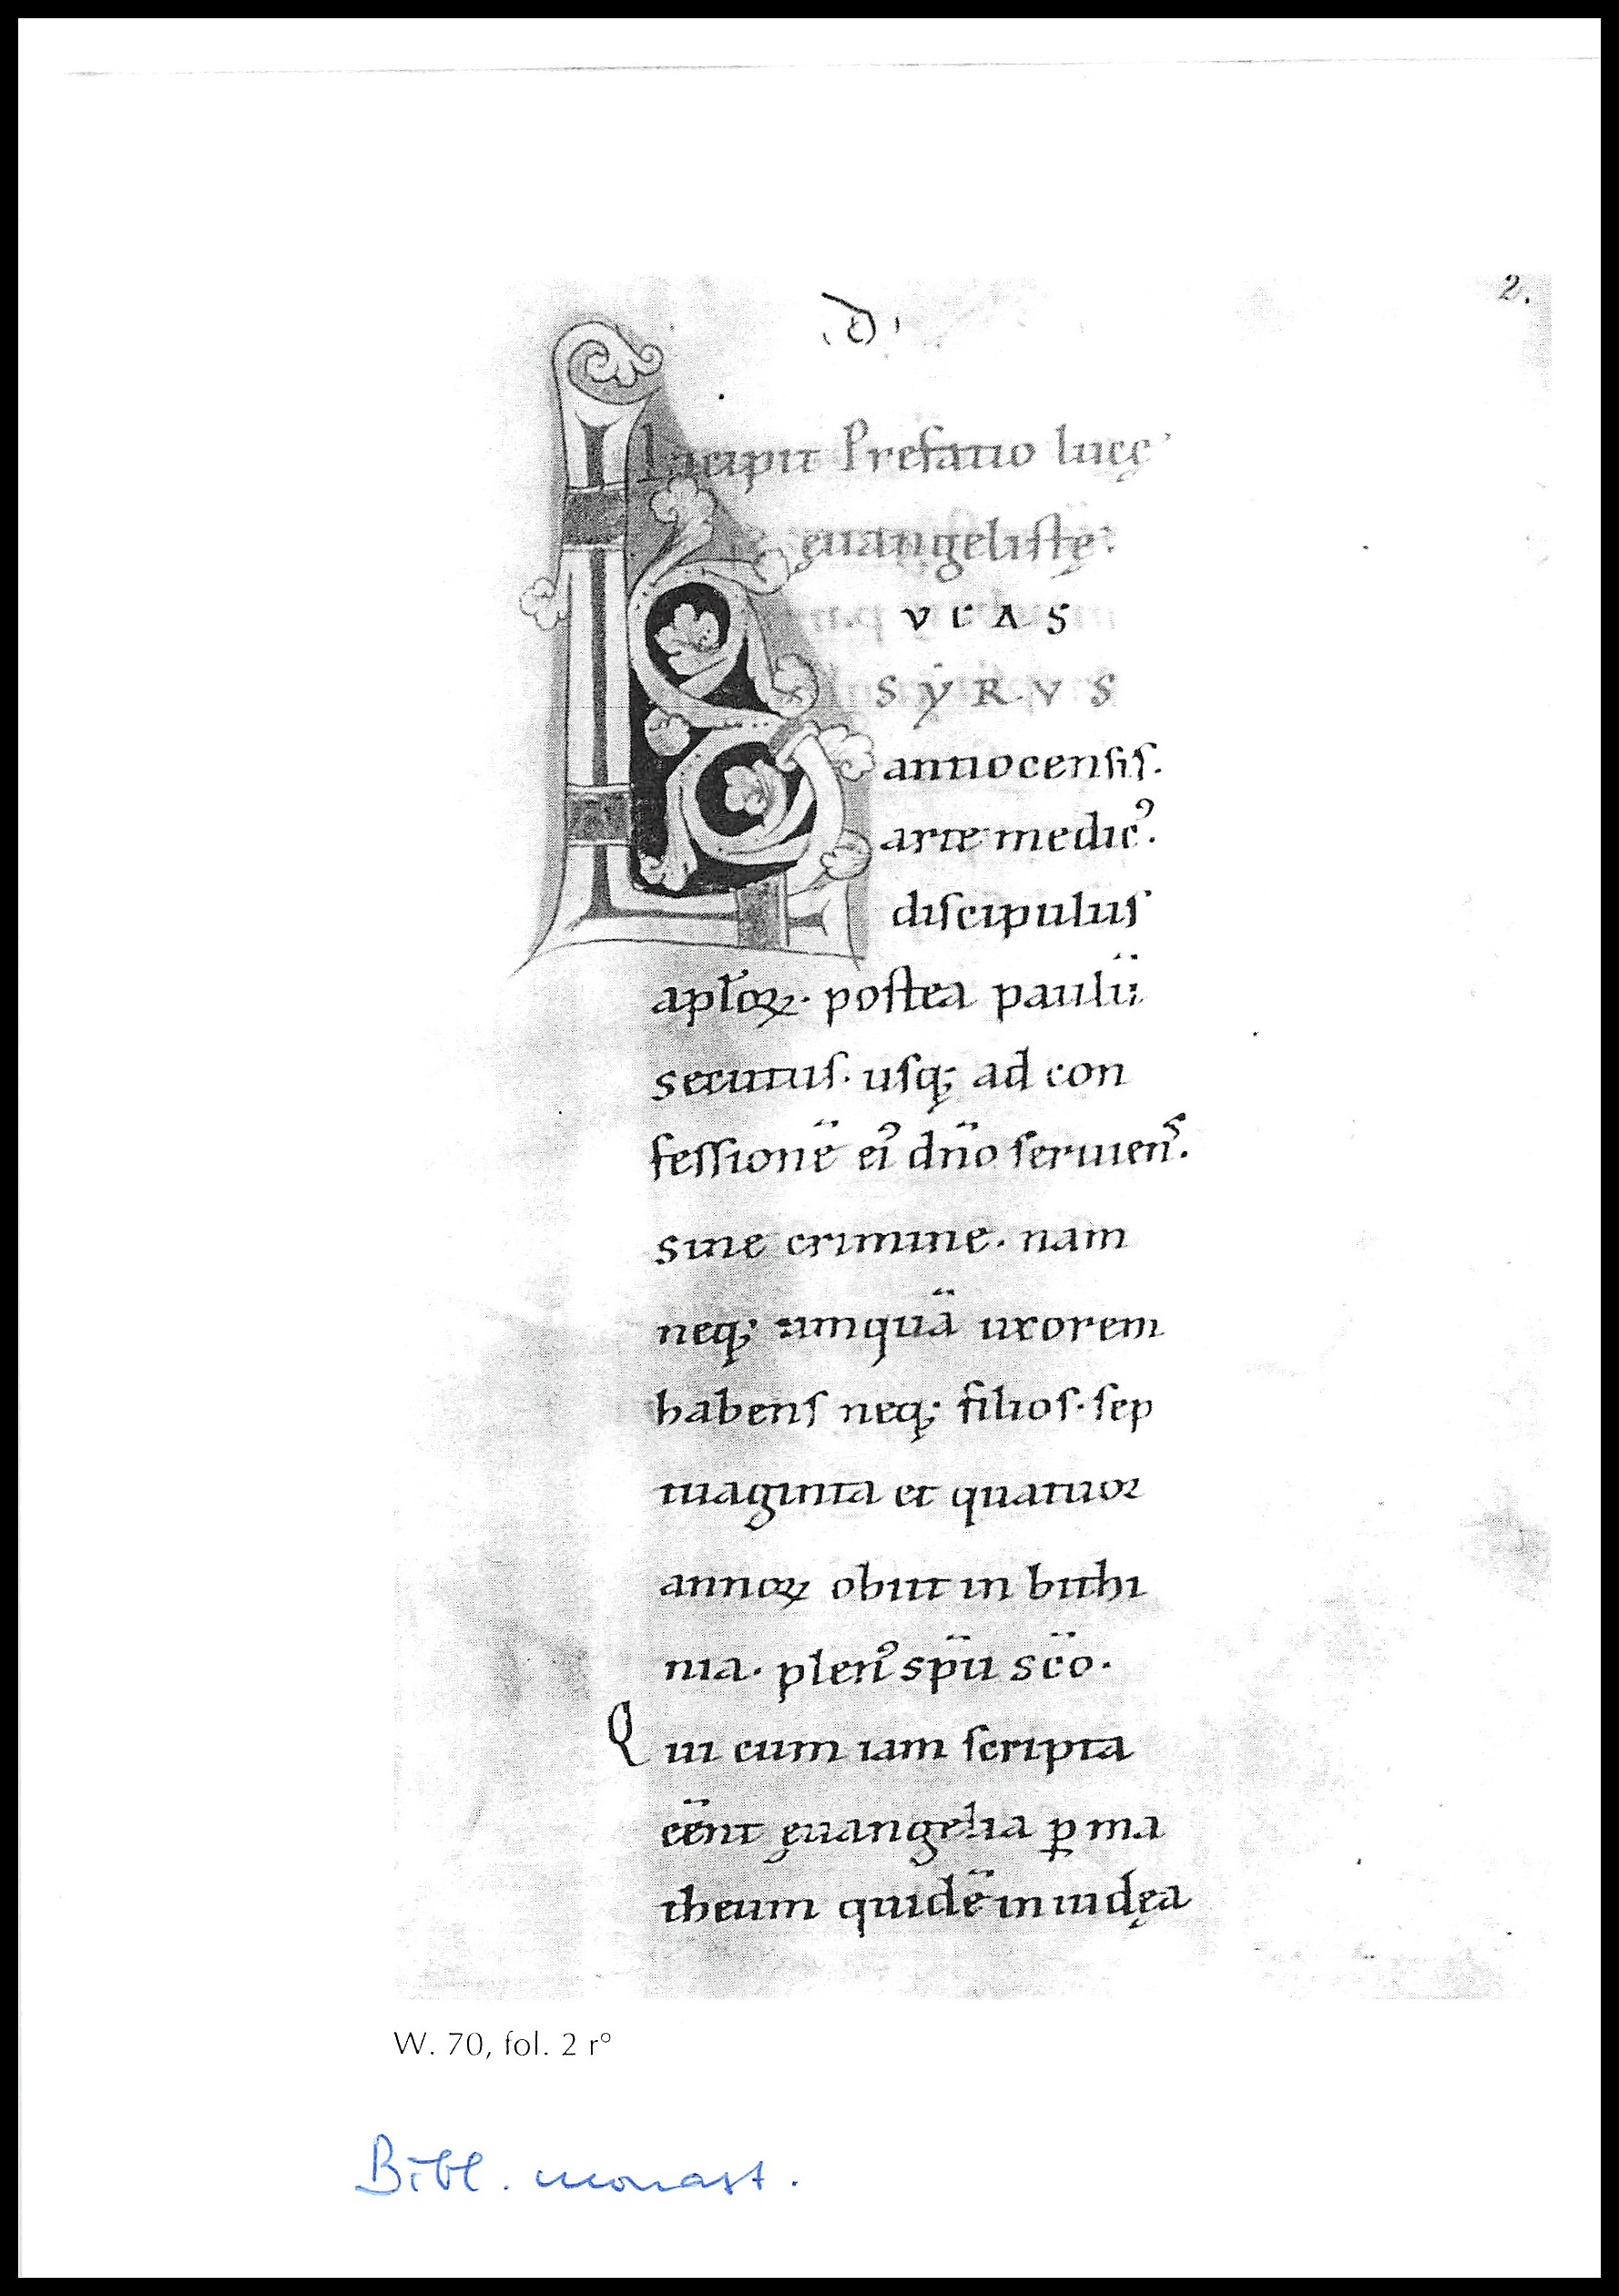 2.
.d.
Incipit Prefatio lucę
ęuangelistę.
L VCAS
SYRVS
antiocensis.
arte medicꝰ.
discipulus
apl̃oꝝ. postea paulū
secutus. usq; ad con
fessionē eiꝰ dn̄o seruiens.
sine crimine. nam
neq; umquā uxorem
habens neq; filios. sep
tuaginta et quatuor
annoꝝ obiit in bithi
nia. plenꝰ spū scō.
Qui cum iam scripta
eēnt ęuangelia ꝑ ma
theum quidē in iudęa
W. 70, fol. 2 r°
Bibl. monast.